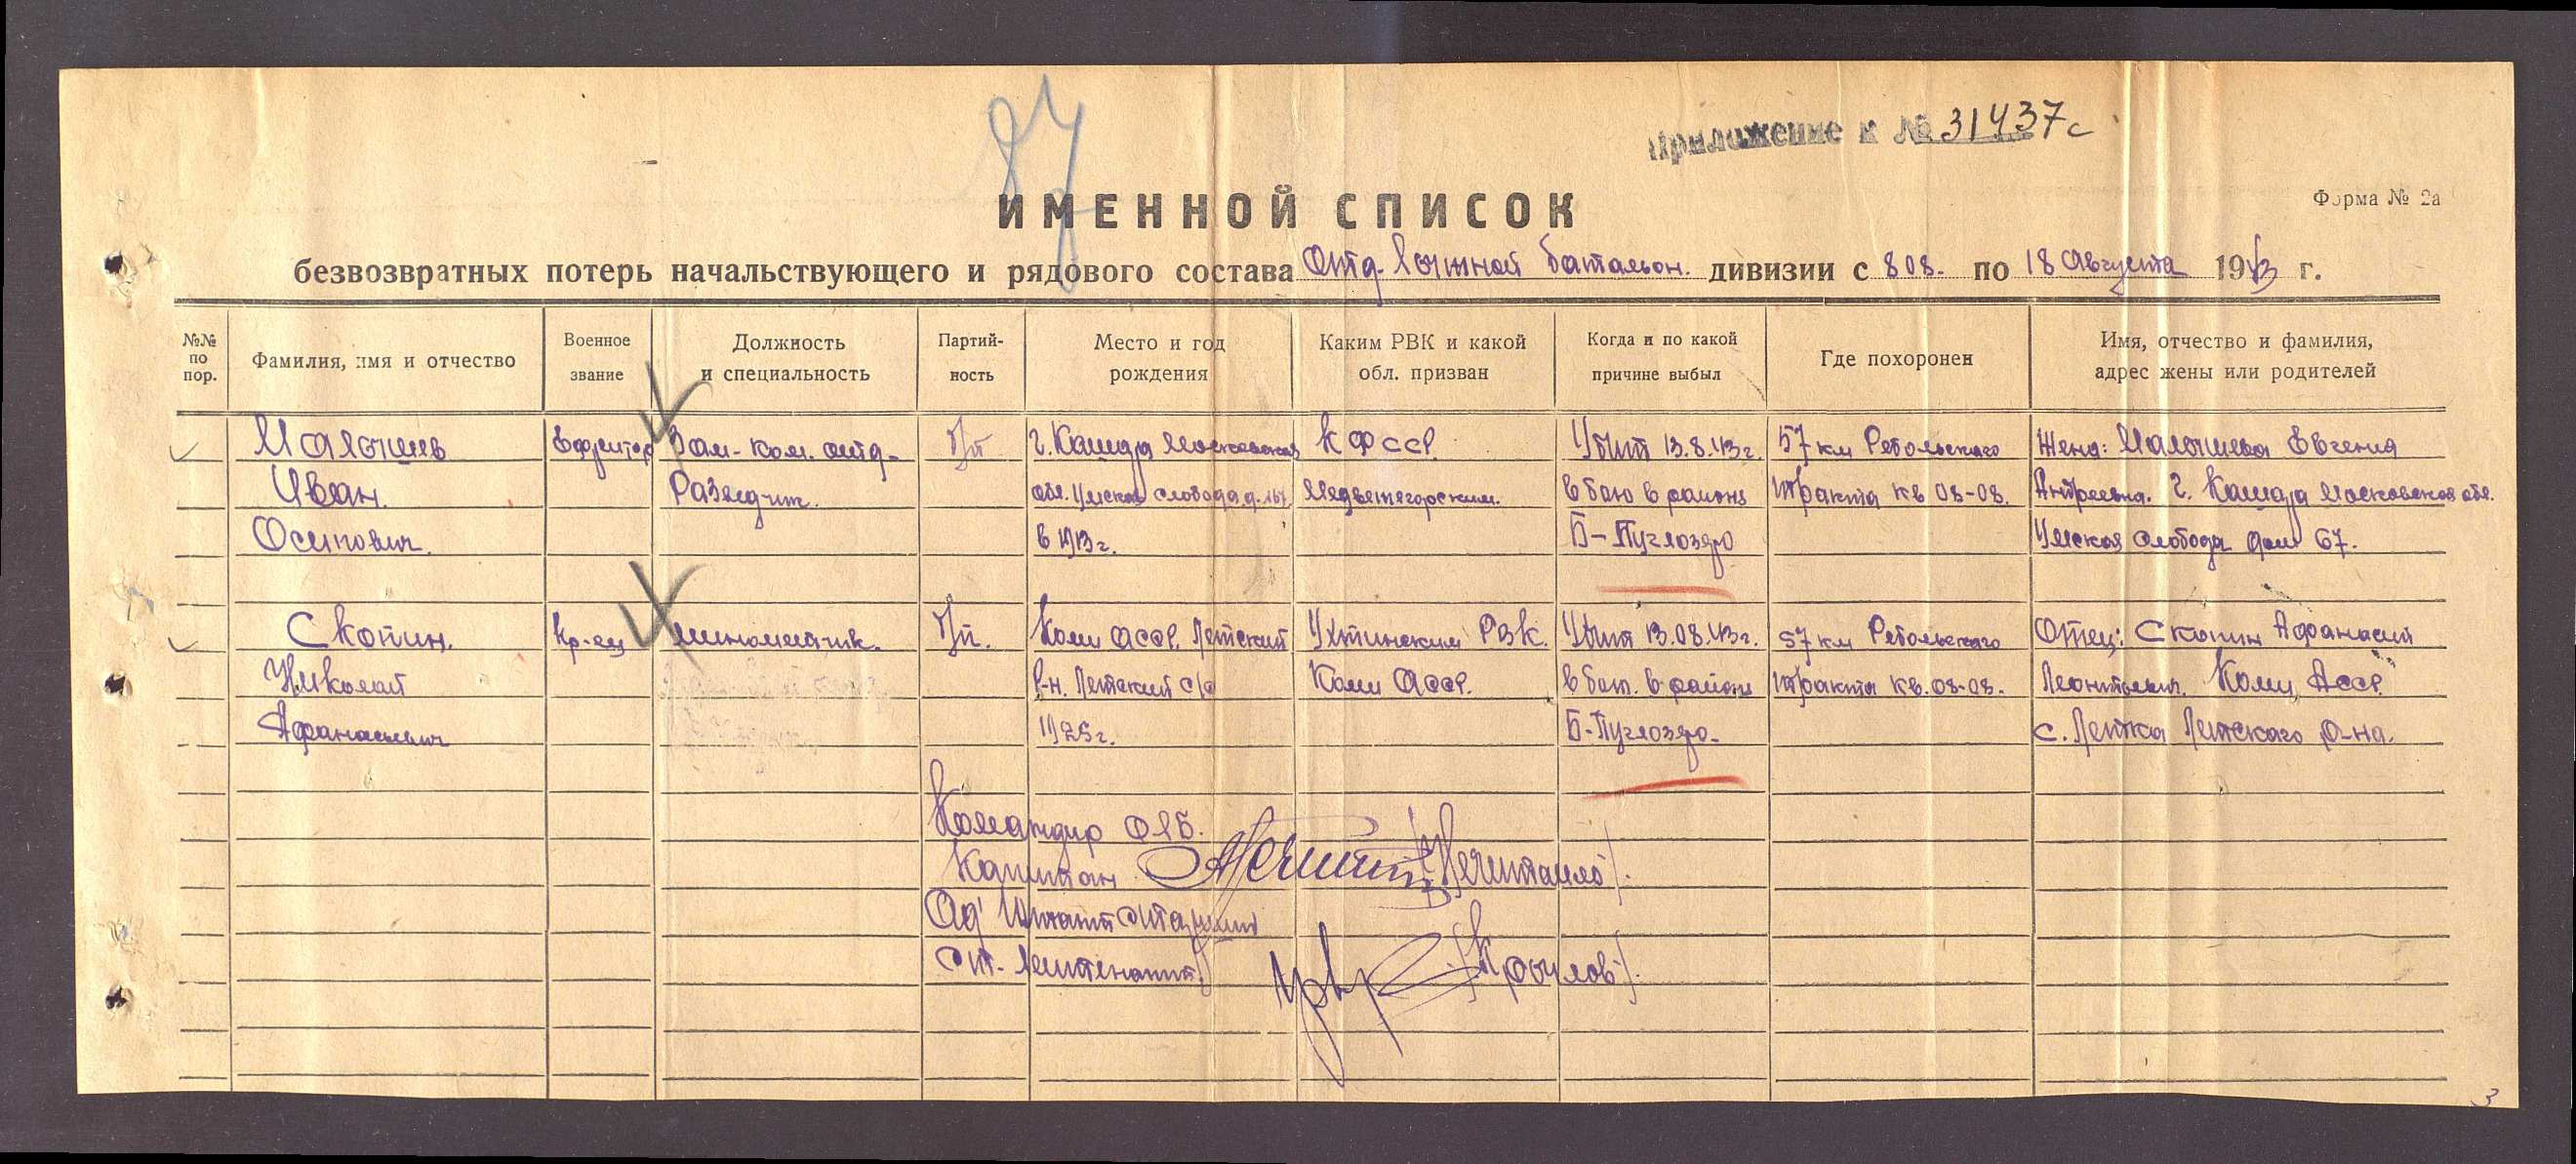 87
Приложение к № 31437с
ИМЕННОЙ СПИСОК
Форма № 2а
безвозвратных потерь начальствующего и рядового состава Отд. Лыжной батальон. дивизии с 8 08. по 18 Августа 1943 г.
№№ по пор.
Фамилия, имя и отчество
Военное звание
Должность и специальность
Партийность
Место и год рождения
Каким РВК и какой обл. призван
Когда и по какой причине выбыл
Где похоронен
Имя, отчество и фамилия, адрес жены или родителей
Малышев Ефрейтор Зам. ком. отд. б/п г. Кашира Московская К Ф ССР. Убит 13.8.43 г. 57 км Ребольского Жена: Малышева Евгения
Иван. Разведчик. обл. Ямская слобода д. №67 Медвежегорским. в бою в районе тракта кв 08-08. Андреевна. г. Кашира Московская обл.
Осипович. в 1913 г. Б-Пуглозеро Ямская слобода дом 67.
Скопин. Кр-ец минометчик. б/п. Коми АССР. Летский Ухтинским РВК. Убит 13.08.43 г. 57 км Ребольского Отец: Скопин Афанасий
Николай р-н. Летский с/с Коми АССР. в бою. в районе тракта кв. 08-08. Леонтьевич. Коми АССР.
Афанасьевич 1925 г. Б-Пуглозеро. с. Летка Летского р-на.
Командир ОЛБ.
Капитан /Нечитайло/.
Адъютант старший
ст. лейтенант. /Крылов/.
3